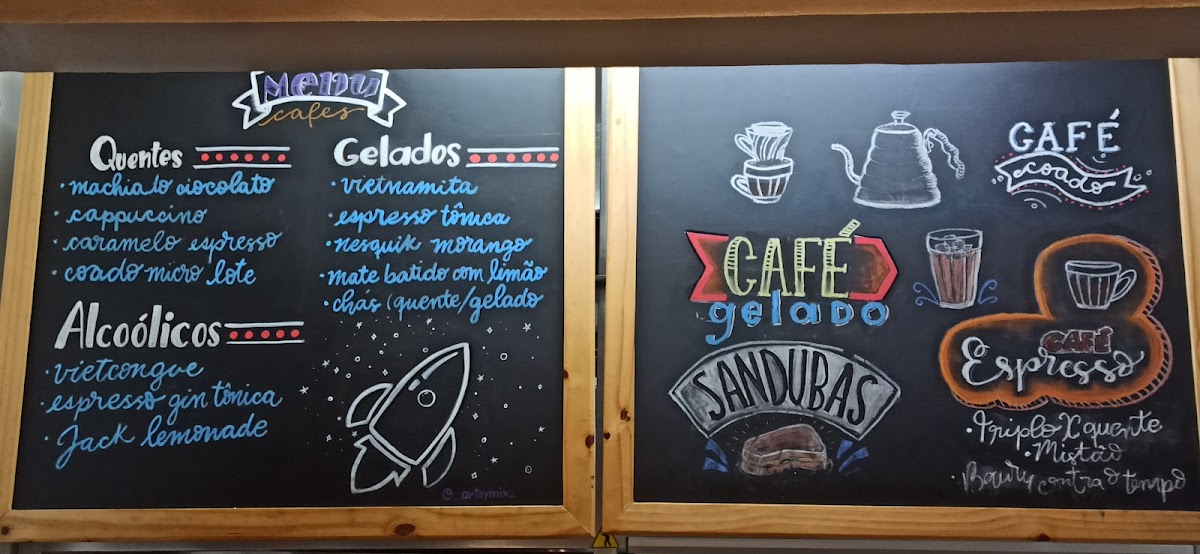 Menu
cafes
Quentes
• machiato ciocolato
• cappuccino
• caramelo espresso
• coado micro lote
Alcoólicos
• vietcongue
• espresso gin tônica
• Jack lemonade
Gelados
• vietnamita
• espresso tônica
• nesquik morango
• mate batido com limão
• chás (quente/gelado
@_artsymix_
CAFÉ
coado
CAFÉ
gelado
SANDUBAS
CAFÉ
Espresso
• Triplo X quente
• Mistão
• Bowry contra o tempo